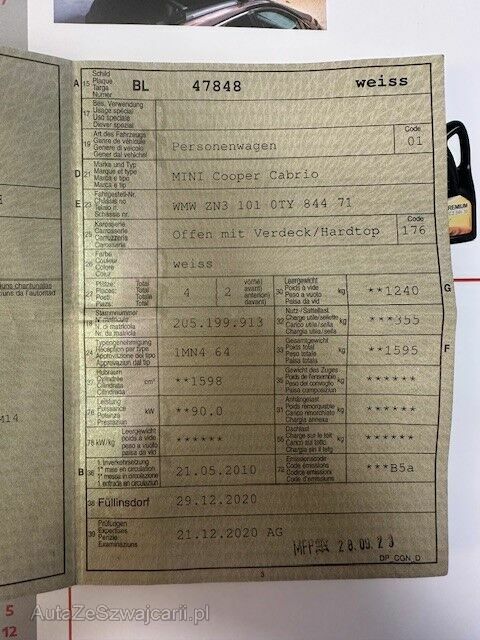 A 15 Schild Plaque Targa Numer BL 47848 weiss
17 Bes. Verwendung Usage spécial Uso speciale Diever spezial
19 Art des Fahrzeugs Genre de véhicule Genere di veicolo Gener dal vehichel Personenwagen Code 01
D 21 Marke und Typ Marque et type Marca e tipo Marca e tip MINI Cooper Cabrio
E 23 Fahrgestell-Nr. Châssis no Telaio n. Schassis nr. WMW ZN3 101 0TY 844 71
25 Karosserie Carrosserie Carrozzeria Carrossaria Offen mit Verdeck/Hardtop Code 176
26 Farbe Couleur Colore Colur weiss
27 Plätze: Total Places: Total Posti: Totale Plazs: Total 4 2 vorne) avant) anteriori) davant)
30 Leergewicht Poids à vide Peso a vuoto Paisa da vid kg **1240 G
18 Stammnummer N. matricola Nr. da matricla 205.199.913
32 Nutz-/Sattellast Charge utile/sellette Carico utile/sella Chargia utila/sella kg ***355
24 Typengenehmigung Réception par type Approvazione del tipo Approvaziun dal tip 1MN4 64
33 Gesamtgewicht Poids total Peso totale Paisa totala kg **1595 F
37 Hubraum Cylindrée Cilindrata Cilindrada cm³ **1598
35 Gewicht des Zuges Poids de l'ensemble Peso del convoglio Paisa cumposiziun kg ******
76 Leistung Puissance Potenza Prestaziun kW **90.0
31 Anhängelast Poids remorquable Carico rimorchiato Chargia annexa kg ******
78 kW/kg Leergewicht poids à vide peso a vuoto paisa da vid ******
55 Dachlast Charge sur le toit Carico sul tetto Chargia sin il tetg kg ******
B 36 1. Inverkehrsetzung 1re mise en circulation 1. messa in circolazione 1. entrada en circulaziun 21.05.2010
72 Emissionscode Code émissions Codice emissioni Code d'emissiuns ***B5a
38 Füllinsdorf 29.12.2020
39 Prüfungen Expertises Perizie Examinaziuns 21.12.2020 AG
28.09.23
DP_CGN_D
3
M14
5
12
PREMIUM
AutaZeSzwajcarii.pl